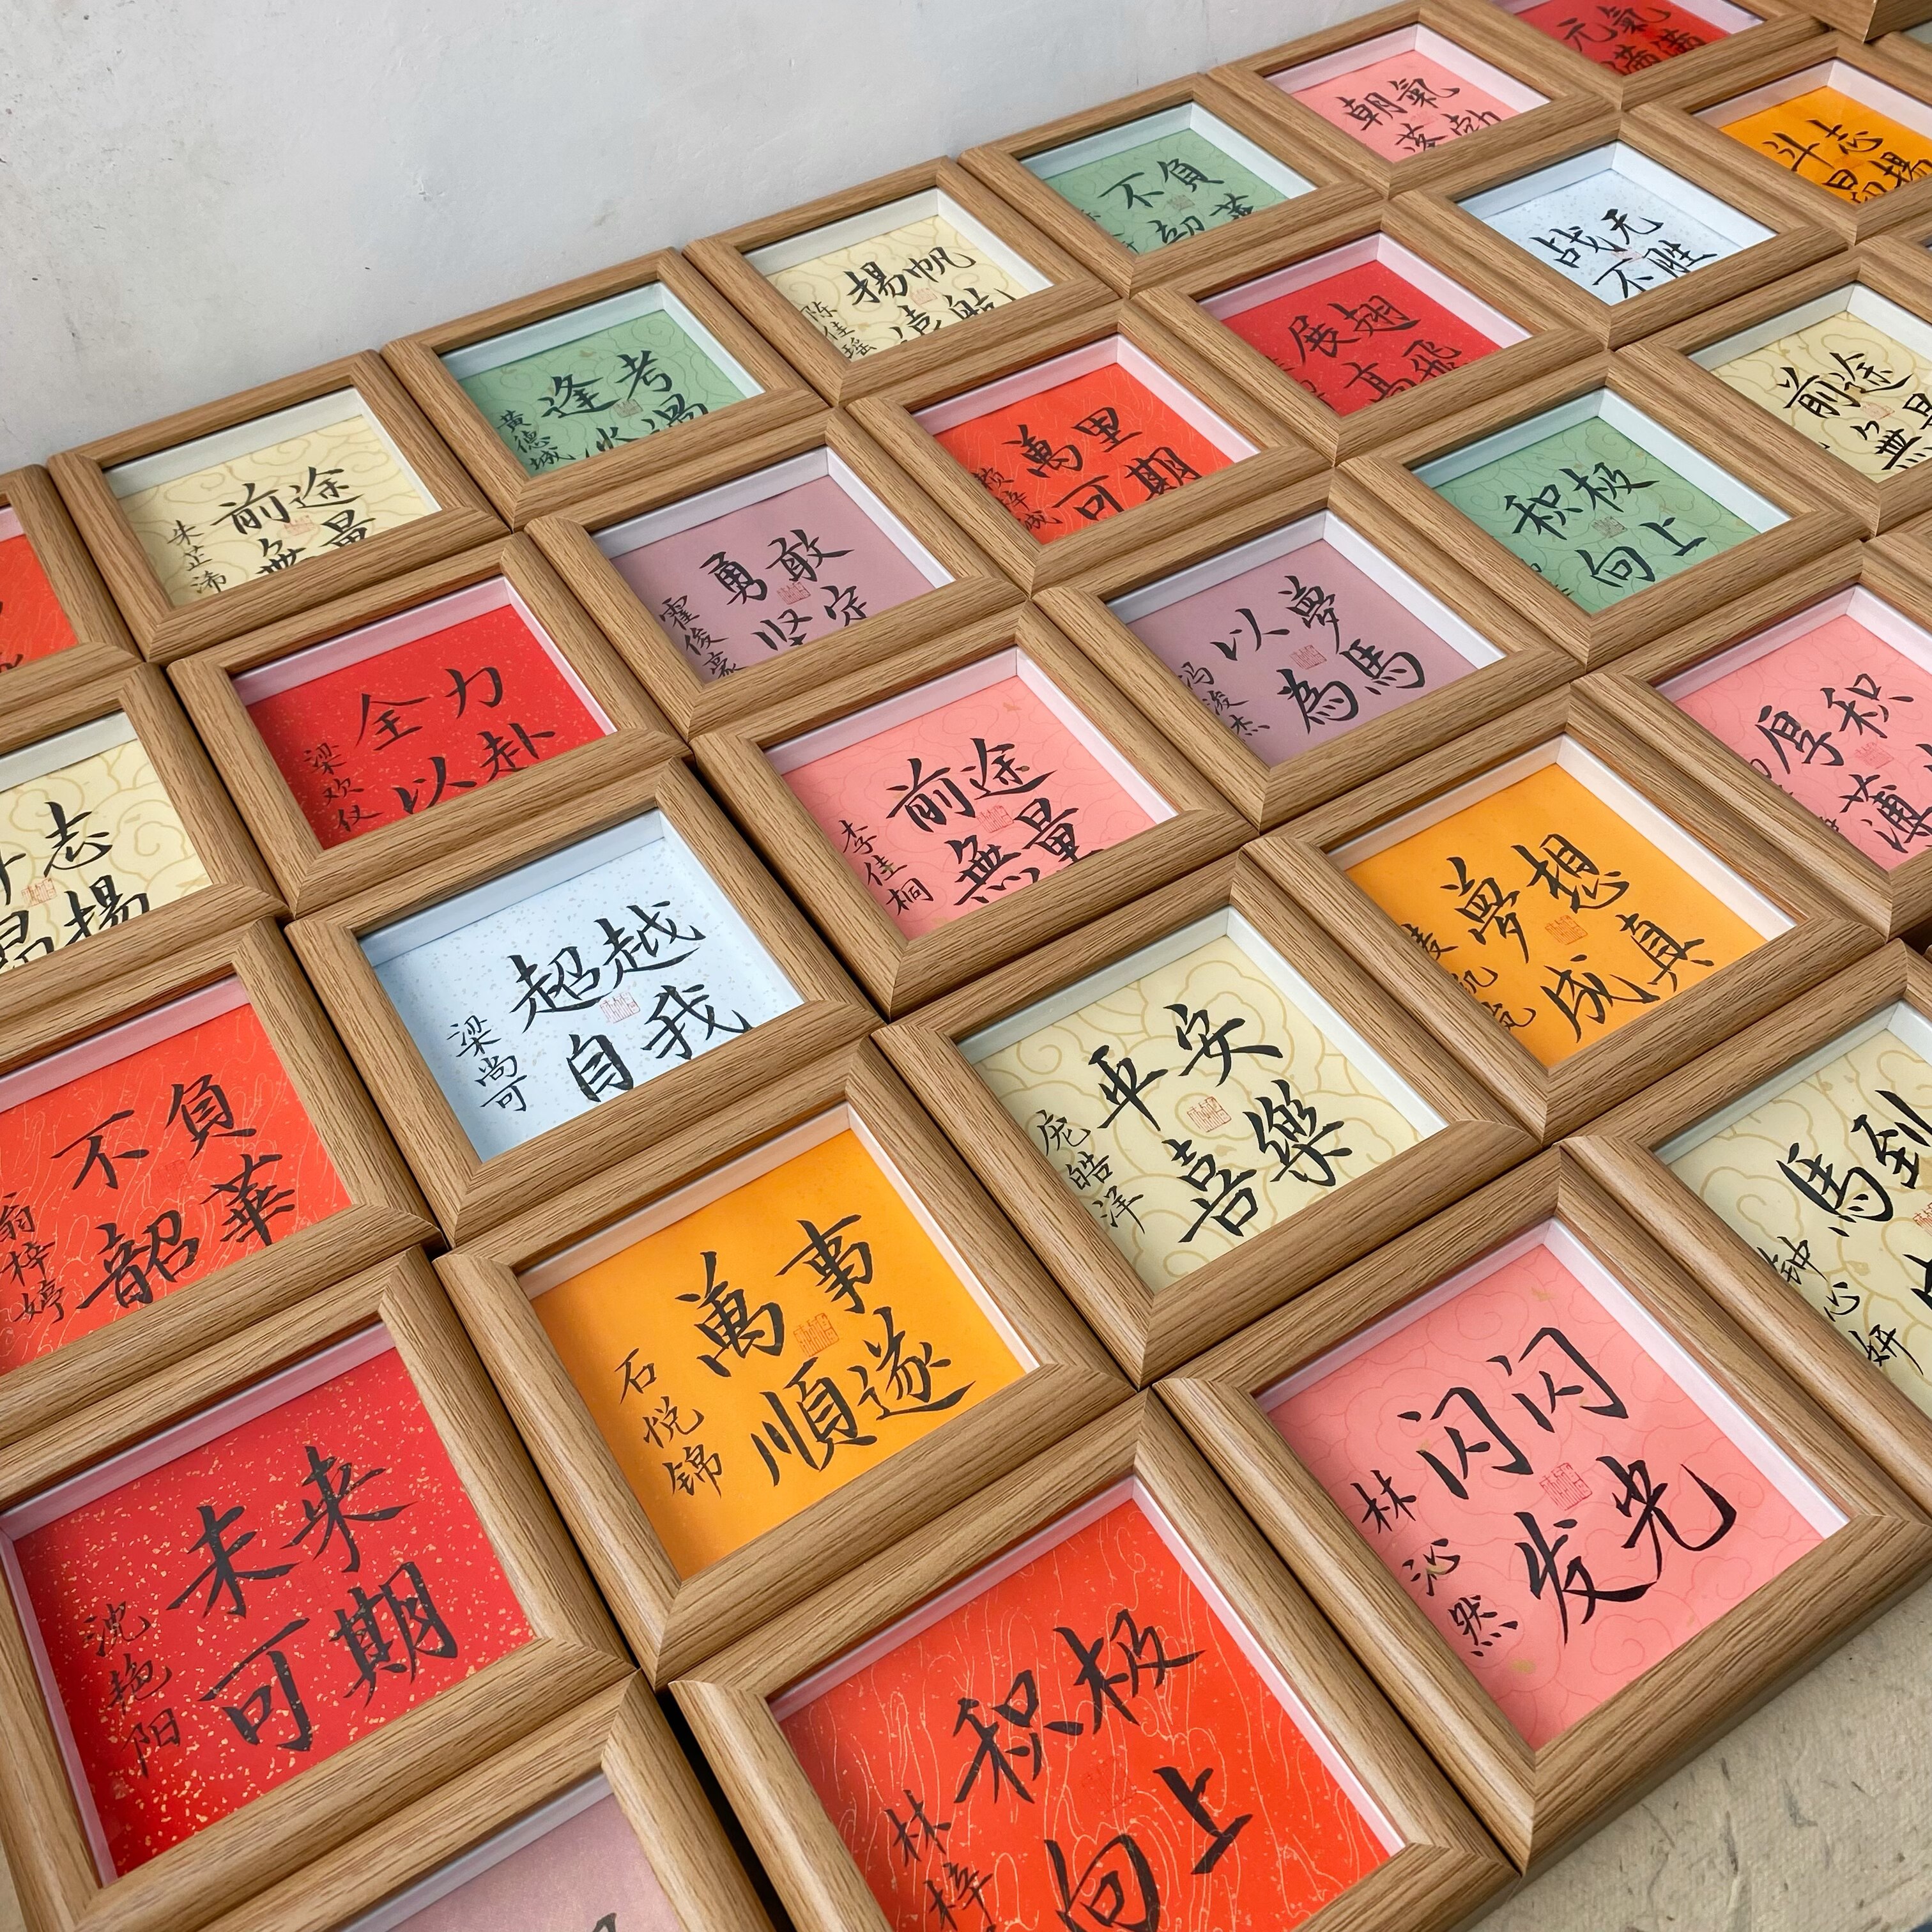 元氣
满满
朝氣
斗志
不負
战无
不胜
揚帆
陈佳瑶
展翅
高飛
前途
逢考
黄德城
萬里
可期
积极
向上
前途
無量
朱芷浠
勇敢
坚定
霍俊豪
以夢
為馬
冯浚杰
厚积
薄
全力
以赴
梁欢仪
前途
無量
李佳桐
夢想
成真
志
昂揚
超越
自我
梁尚可
平安
喜樂
庞皓洋
馬到
钟心妍
不負
韶華
翁梓婷
萬事
順遂
石悦锦
闪闪
发光
林沁然
未来
可期
沈艳阳
积极
向上
林梓